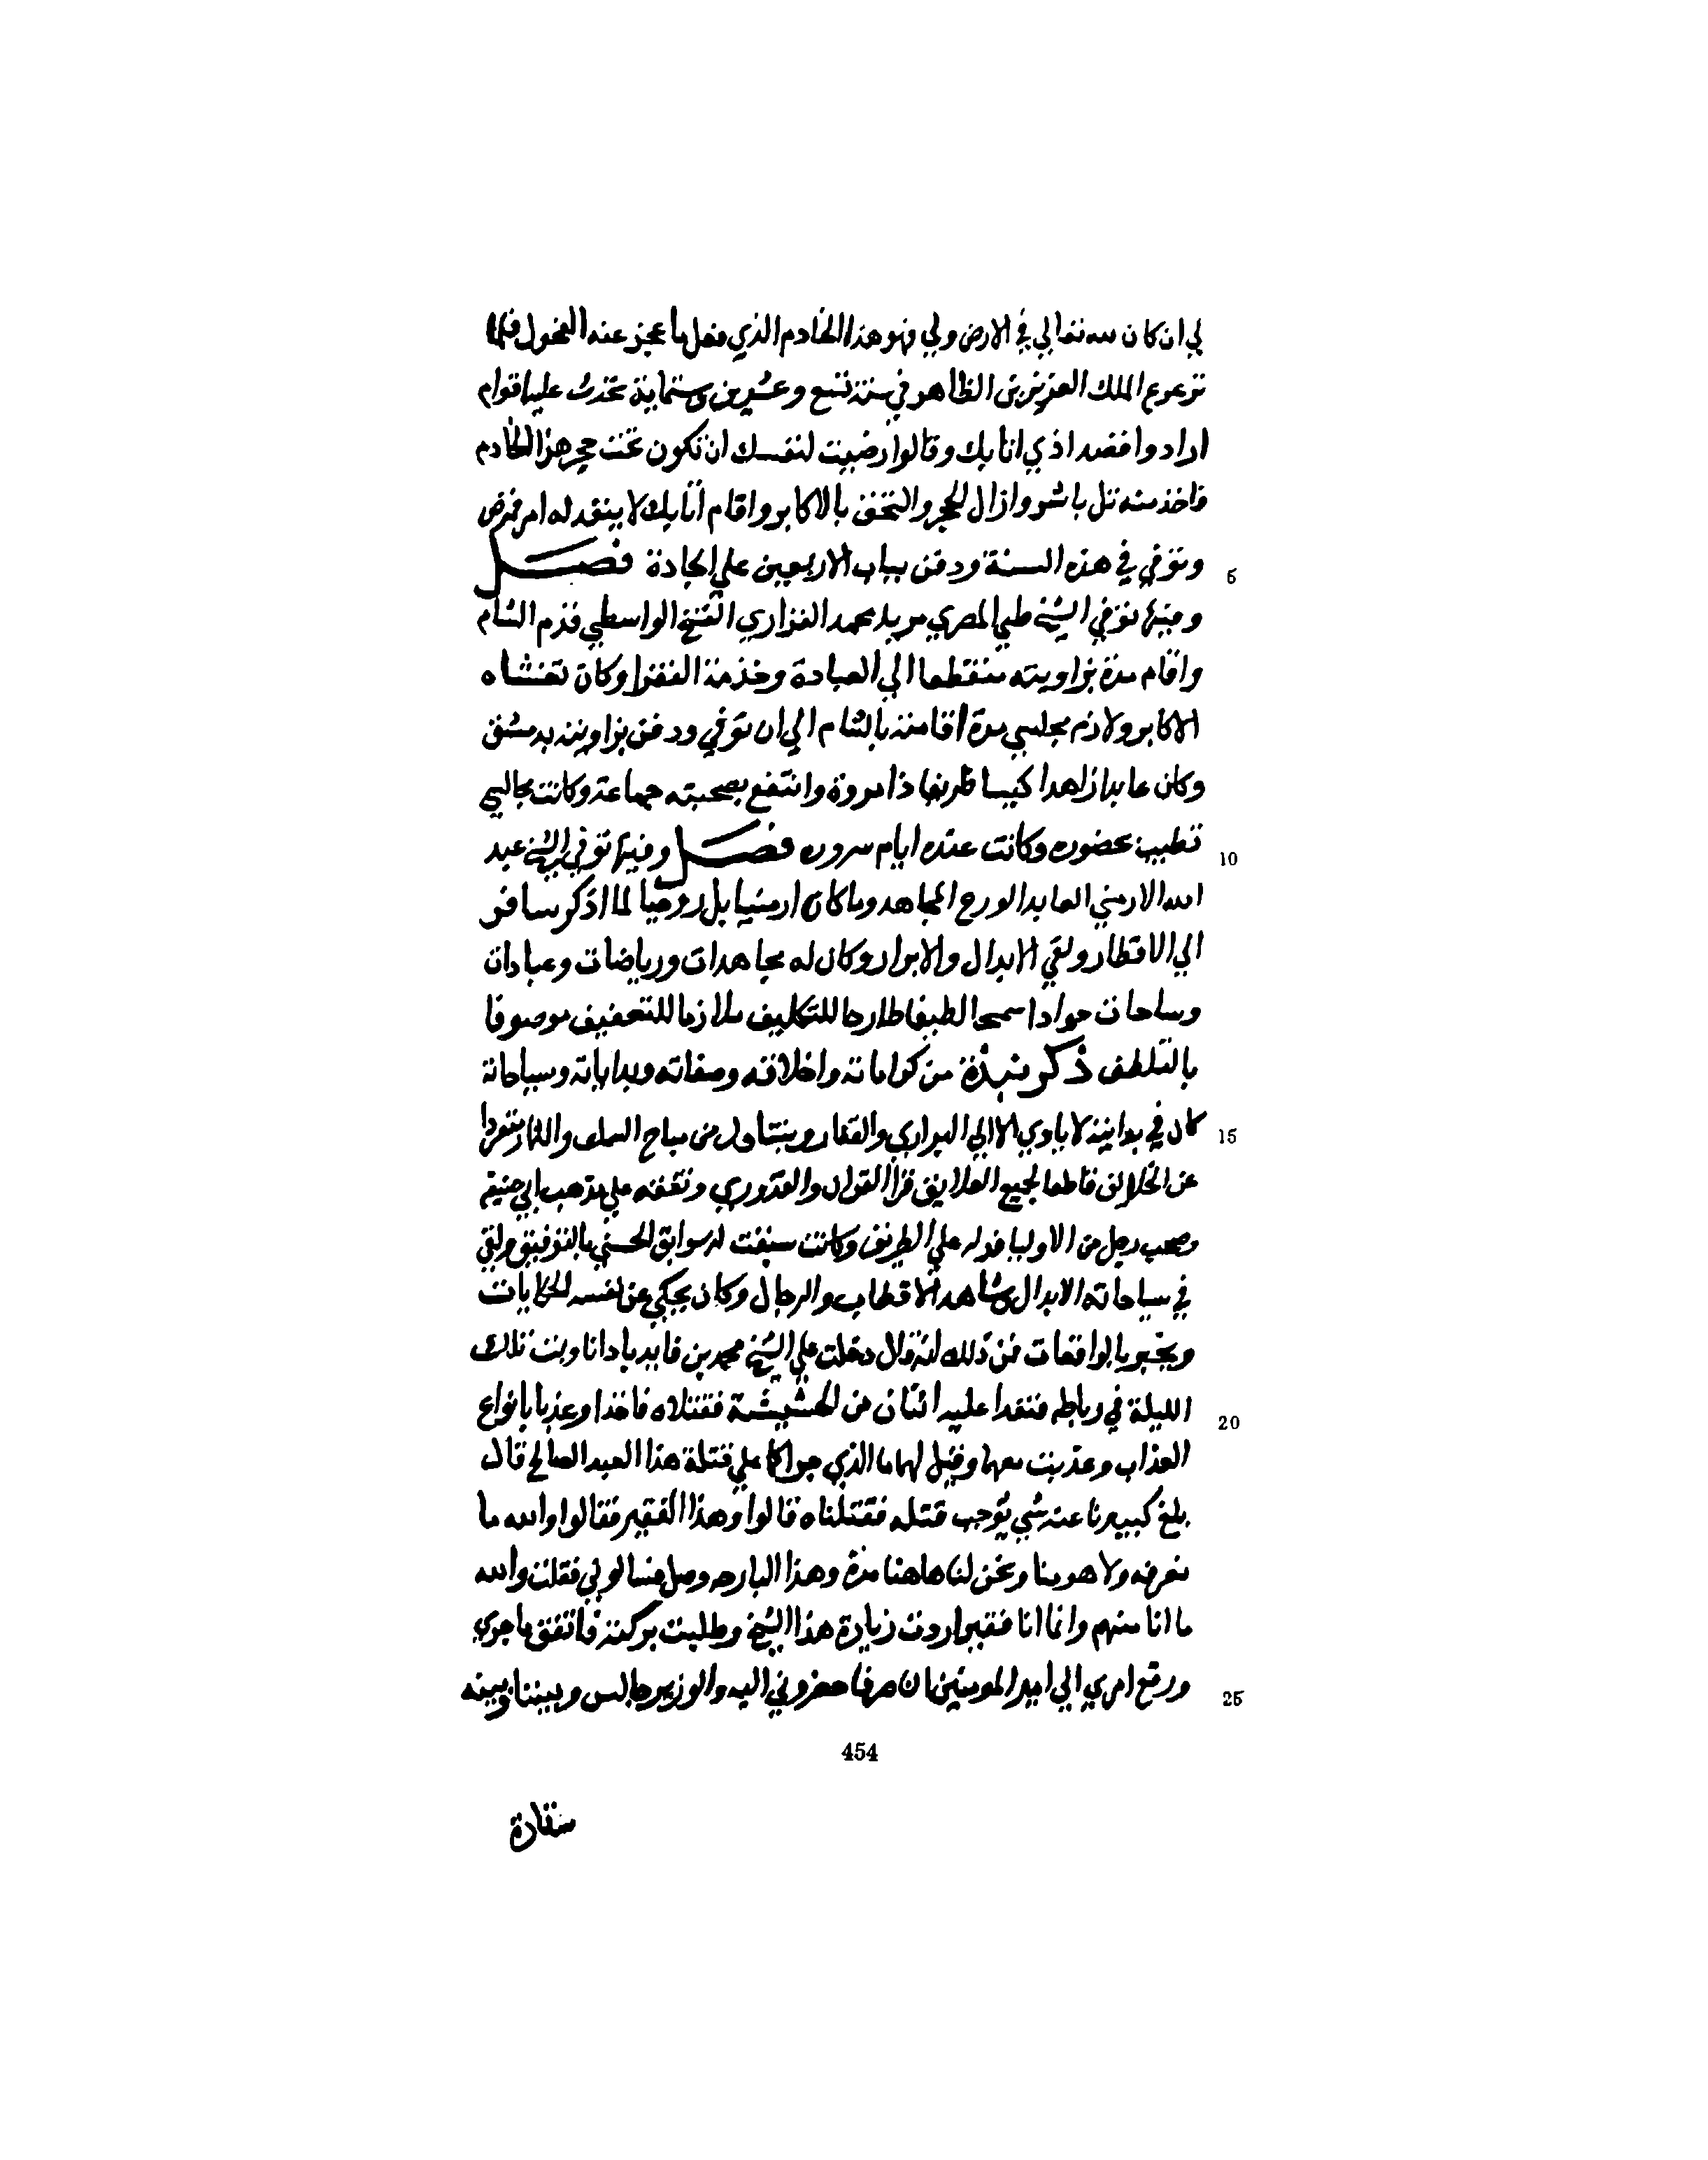 لي ان كان لله تعالي في الارض ولي فهو هذا الخادم الذي فعل ما عجز عنه الفحول فلما
ترعرع الملك العزيز بن الظاهر في سنة تسع وعشرين وستماية تحدث عليه اقوام
ارادوا قصد اذي اتابك وقالوا رضيت لنفسك ان تكون تحت حجر هذا الخادم
فاخذ منه تل باشر وازال الحجر والتحق بالاكابر واقام اتابك لا ينفذ له امر فمرض
وتوفي في هذه السنة ودفن بباب الاربعين علي الجادة فصل
وفيها توفي الشيخ طي المصري مريد محمد الفزاري الشيخ الواسطي قدم الشام
واقام مدة بزاويته منقطعا الي العبادة وخدمة الفقرا وكان تغشاه
الاكابر ولازم مجلسي مدة اقامته بالشام الي ان توفي ودفن بزاويته بدمشق
وكان عابدا زاهدا كيسا ظريفا ذا مروة وانتفع بصحبته جماعة وكانت مجالسي
تطيب بحضوره وكانت عنده ايام سروره فصل وفيها توفي الشيخ عبد
الله الارمني العابد الورع المجاهد وما كان ارمنيا بل روميا لما اذكر سافر
الي الاقطار ولقي الابدال والابرار وكان له مجاهدات ورياضات وعبادات
وساحات جوادا سمحا لطيفا طارحا للتكليف ملازما للتعفيف موصوفا
بالتلطف ذكر نبذة من كراماته واخلاقه وصفاته وبداياته وسياحاته
كان في بدايته لا ياوي الا الي البراري والقفار ويتناول من مباح السماء والانهار متفردا
عن الخلايق قاطعا لجميع العلايق قرا القران والقدوري وتفقه علي مذهب ابي حنيفه
وصحب رجل من الاوليا فدله علي الطريق وكانت سبقت له سوابق الحسني بالتوفيق ولقي
في سياحاته الابدال وشاهد الاقطاب والرجال وكان يحكي عن نفسه الحكايات
ويخبر بالواقعات فمن ذلك انه قال دخلت علي الشيخ محمد بن قايد باوانا وبت تلك
الليلة في رباطه فنفدا عليه اثنان من الحشيشة فقتلاه فاخذا وعذبا بانواع
العذاب وعذبت معهما وقيل لهما ما الذي جراكما علي قتلة هذا العبد الصالح قال
بلغ كبيرنا عنه شي يوجب قتله فقتلناه قالوا وهذا الفقير فقالوا والله ما
نعرفه ولا هو منا ونحن لنا هاهنا مدة وهذا البارحه وصل فسالوني فقلت والله
ما انا منهم وانما انا فقير اردت زيارة هذا الشيخ وطلبت بركته فاتفق ما جري
ورفع امري الي امير المومنين ان احضروني اليه والوزير جالس وبيننا وبينه
5
10
15
20
25
454
ستارة